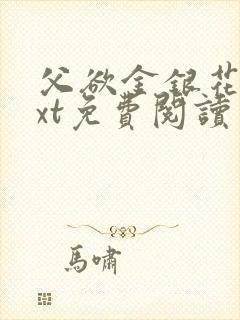 父欲金銀花
xt免費閱讀
馬嘯